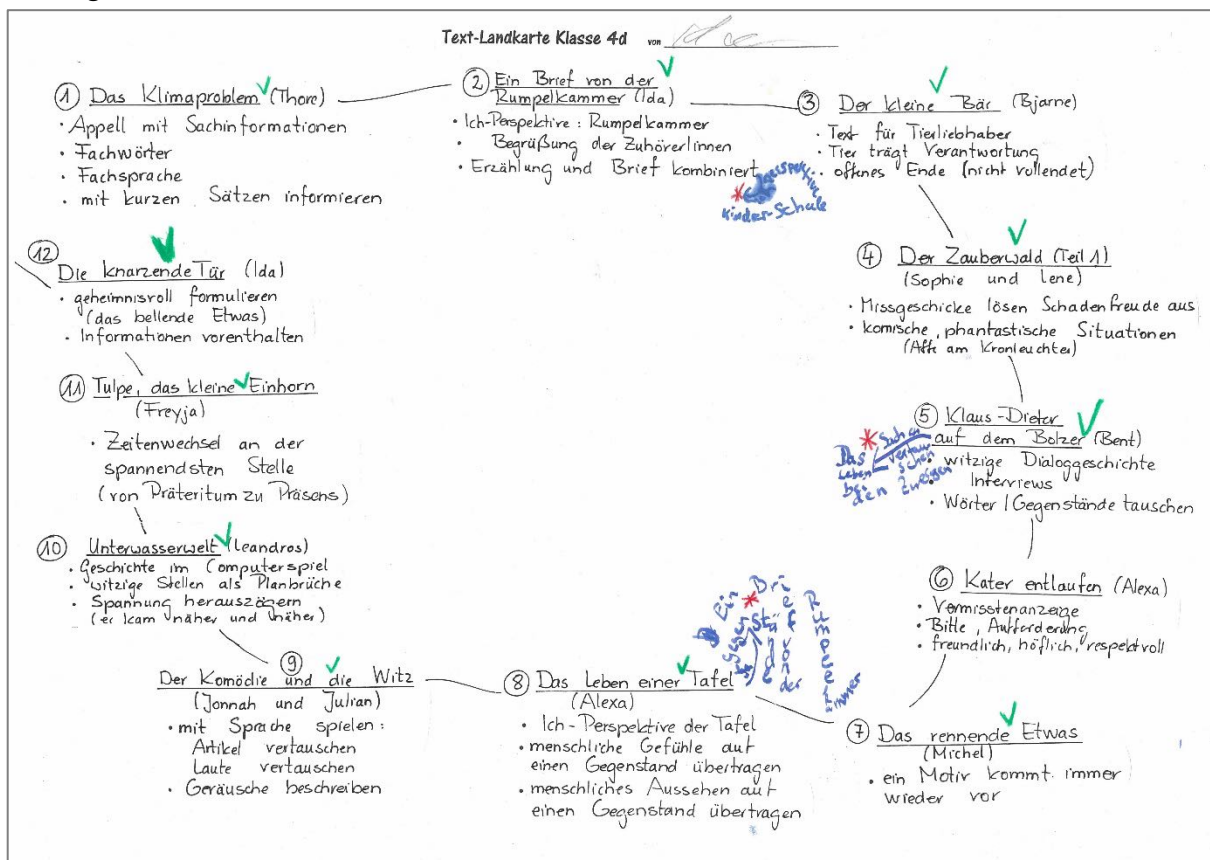 Text-Landkarte Klasse 4d von
① Das Klimaproblem (Thore)
• Appell mit Sachinformationen
• Fachwörter
• Fachsprache
• mit kurzen Sätzen informieren
② Ein Brief von der
Rumpelkammer (Ida)
• Ich-Perspektive: Rumpelkammer
• Begrüßung der ZuhörerInnen
• Erzählung und Brief kombiniert
* perspektive
Kinder-Schule
③ Der kleine Bär (Bjarne)
• Text für Tierliebhaber
• Tier trägt Verantwortung
• offnes Ende (nicht vollendet)
④ Der Zauberwald (Teil 1)
(Sophie und Lene)
• Missgeschicke lösen Schadenfreude aus
• komische, phantastische Situationen
(Affe am Kronleuchter)
⑤ Klaus-Dieter
auf dem Bolzer (Bent)
• witzige Dialoggeschichte
• Interviews
• Wörter / Gegenstände tauschen
* Sachen
vertau
schen
Das
Leben
bei
den Zwergen
⑥ Kater entlaufen (Alexa)
• Vermisstenanzeige
• Bitte, Aufforderung
• freundlich, höflich, respektvoll
⑦ Das rennende Etwas
(Michel)
• ein Motiv kommt immer
wieder vor
⑧ Das Leben einer Tafel
(Alexa)
• Ich-Perspektive der Tafel
• menschliche Gefühle auf
einen Gegenstand übertragen
• menschliches Aussehen auf
einen Gegenstand übertragen
* Gegenstände
Ein Brief von der
⑨
Der Komödie und die Witz
(Jonnah und Julian)
• mit Sprache spielen:
Artikel vertauschen
Laute vertauschen
• Geräusche beschreiben
⑩ Unterwasserwelt (Leandros)
• Geschichte im Computerspiel
• witzige Stellen als Planbrüche
• Spannung herauszögern
(er kam näher und näher)
⑪ Tulpe, das kleine Einhorn
(Freyja)
• Zeitenwechsel an der
spannendsten Stelle
(von Präteritum zu Präsens)
⑫
Die knarzende Tür (Ida)
• geheimnisvoll formulieren
(das bellende Etwas)
• Informationen vorenthalten